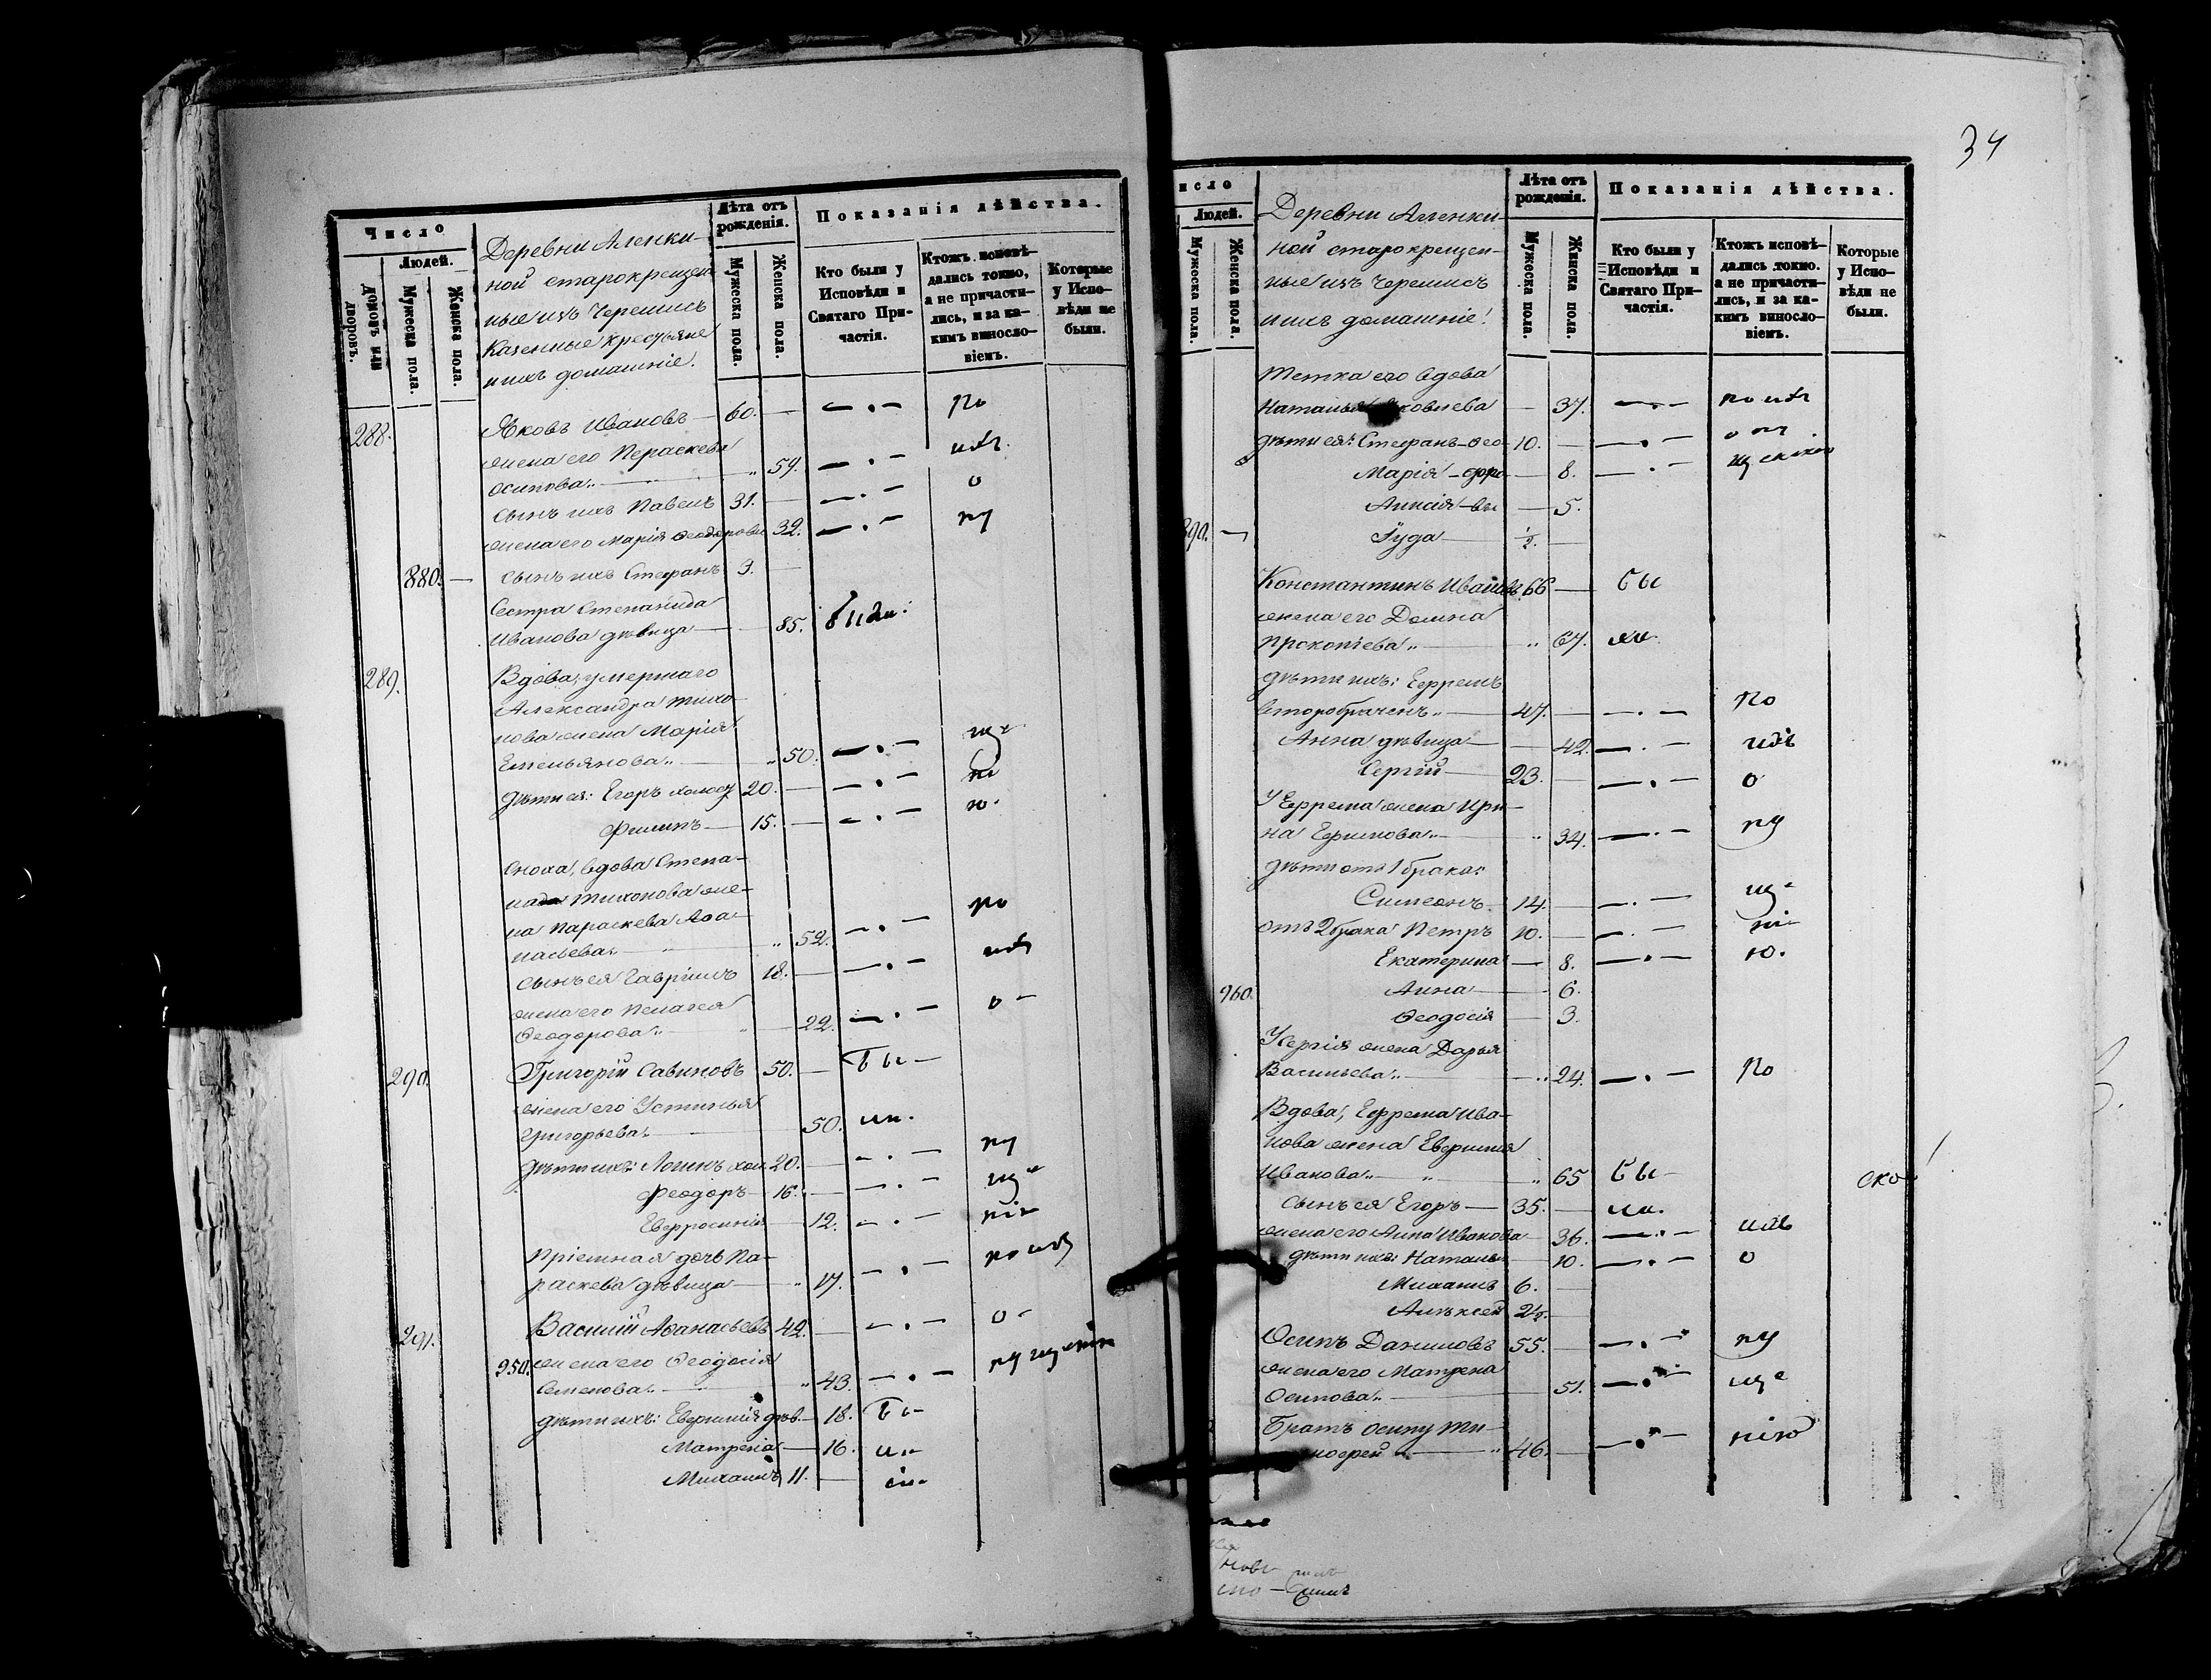 Число
Людей.
Домовъ или дворовъ.
Мужеска пола.
Женска пола.
Деревни Аленки-
ной старокрещен-
ные изъ Черемисъ
Казенные крестьяне
и ихъ домашніе.
Лѣта отъ рожденія.
Мужеска пола.
Женска пола.
Показанія дѣйства.
Кто были у
Исповѣди и
Святаго При-
частія.
Ктожъ исповѣ-
дались токмо,
а не причасти-
лись, и за ка-
кимъ виносло-
віемъ.
Которые
у Испо-
вѣди не
были.
288. Яковъ Ивановъ 60. по
жена его Пераскева
Осипова 59.
сынъ ихъ Павелъ 31. о
жена его Марія Ѳеодорова 32. пу
880. сынъ ихъ Стефанъ 3.
Сестра Степанида
Иванова дѣвица 85.
289. Вдова, умершаго
Александра Тихо-
нова жена Марія
Емельянова 50. ще
дѣти ея: Егоръ холост 20. ні
Филипъ 15. ю.
Сноха, вдова Степа-
на Тихонова же-
на Параскева Аѳа-
насьева 52. по
сынъ ея Гавріилъ 18.
жена его Пелагея
Ѳеодорова 22. о
290. Григорій Савиновъ 50. Бы
жена его Устинья
Григорьева 50. ли.
дѣти ихъ: Логинъ хол. 20. пу
Феодоръ 16. ще
Евфросинія 12. нію
Пріемная дочь Па-
раскева дѣвица 17.
291. Василій Аѳанасьевъ 42. о
950. жена его Ѳеодосія
Семенова 43. пущенію
дѣти ихъ: Евфимія дѣв. 18. Бы
Матрена 16. ли
Михаилъ 11. ли
34
число
Людей.
Мужеска пола.
Женска пола.
Деревни Аленки-
ной старокрещен-
ные изъ Черемисъ
и ихъ домашніе.
Лѣта отъ рожденія.
Мужеска пола.
Женска пола.
Показанія дѣйства.
Кто были у
Исповѣди и
Святаго При-
частія.
Ктожъ исповѣ-
дались токмо.
а не причасти-
лись, и за ка-
кимъ виносло-
віемъ.
Которые
у Испо-
вѣди не
были.
Тетка его вдова
Наталья Яковлева 37.
дѣти ея: Стефанъ 10.
Марія 8.
Анисія 5.
890. Іуда ½.
Константинъ Ивановъ 66. Бы
жена его Домна
Прокопьева 67. ли.
дѣти ихъ: Ефремъ
второбраченъ 47. по
Анна дѣвица 42.
Сергій 23. о
У Ефрема жена Ири-
на Ефимова 34. пу
дѣти отъ 1 брака:
Симеонъ 14. ще
отъ 2 брака Петръ 10. ні
Екатерина 8. ю.
960. Анна 6.
Ѳеодосія 3.
У Сергія жена Дарья
Васильева 24. по
Вдова, Ефрема Ива-
нова жена Евфимія
Иванова 65 Бы
сынъ ея Егоръ 35. ли.
жена его Анна Иванова 36.
дѣти ихъ: Наталья 10. о
Михаилъ 6.
Алексѣй 2½.
Осипъ Даниловъ 55. пу
жена его Матрена
Осипова 51. ще
Братъ Осипу Ти-
мофей 46. нію